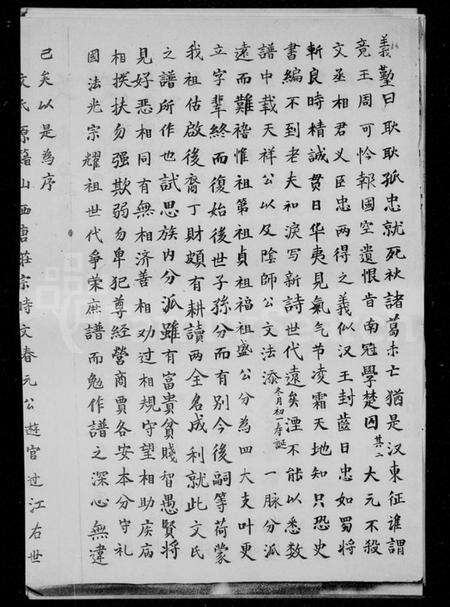 義勤曰耿耿孤忠就死秋諸葛未亡猶是汉東征誰謂
竟王周可怜報國空遺恨肯南冠學楚囚其二大元不殺
文丞相君义臣忠两得之義似汉王封齒日忠如蜀将
斬良時精誠贯日华夷見氣气节凌霜天地知只恐史
書编不到老夫和淚写新詩世代遠矣湮不能以悉数
譜中載天祥公以及陰師公文法添冬月初一寿誕一脉分派
遠而難穡惟祖弟祖貞祖福祖盛公分為四大支叶更
立字輩終而復始後世子孫分而有别今後嗣等荷蒙
我祖估啟後裔丁財頗有耕讀两全名成利就此文氏
之譜所作也試思族内分派雖有富貴貧賤智愚賢将
見好恶相同有無相济善相劝过相規守望相助疾病
相挨扶勿强欺弱勿卑犯尊经營商賈各安本分守礼
國法光宗耀祖世代争荣庶譜而勉作譜之深心無違
已矣以是為序
文氏原籍山西唐莊宗時文春元公遊官过江右世